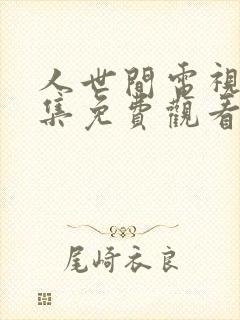 人世間電視
集免費觀看
尾崎衣良